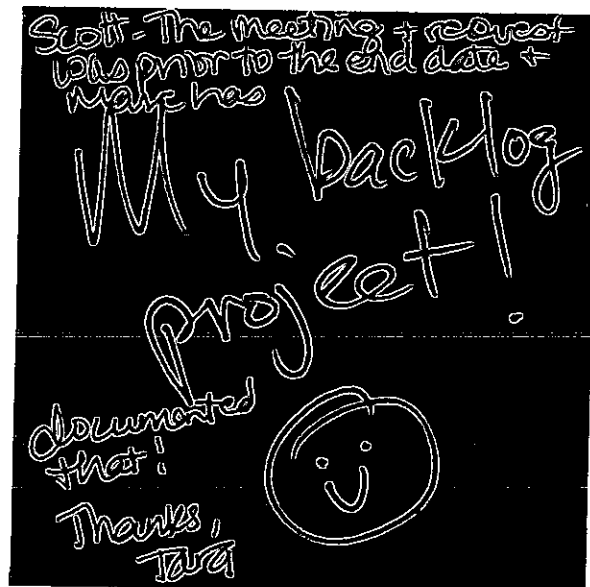 Scott - The meeting + request
was prior to the end date +
Marc has
My backlog
project!
documented
that!
Thanks,
Tara